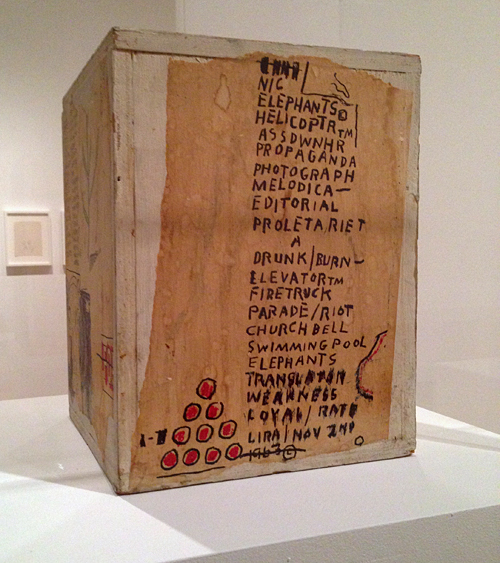 NIC
ELEPHANTS©
HELICOPTR™
ASSDWNHR
PROPAGANDA
PHOTOGRAPH
MELODICA—
EDITORIAL
PROLETARIET
A
DRUNK/BURN—
ELEVATOR™
FIRETRUCK
PARADE/RIOT
CHURCHBELL
SWIMMINGPOOL
ELEPHANTS
WEAKNESS
LOYAL/RATE
LIRA/NOV 2ND
1963©